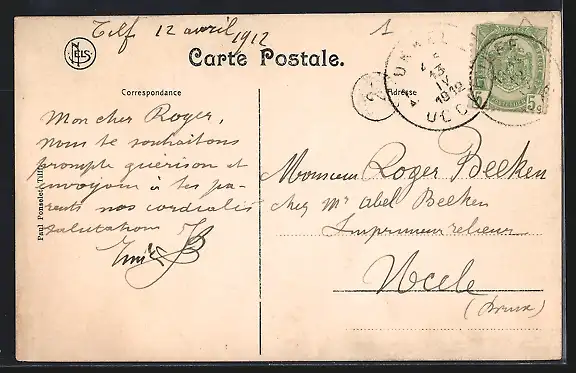 Tilf 12 avril 1912
1
NELS
Carte Postale.
Correspondance
Adresse
Mon cher Roger,
nous te souhaitons
prompte guérison et
envoyons à tes pa-
rents nos cordiales
salutations
Paul Ponselet, Tilff
Monsieur Roger Beeken
chez Mr Abel Beeken
Imprimeur relieur
Uccle
(Brux)
UKKEL
13
IV
1912
UCCLE
5 5